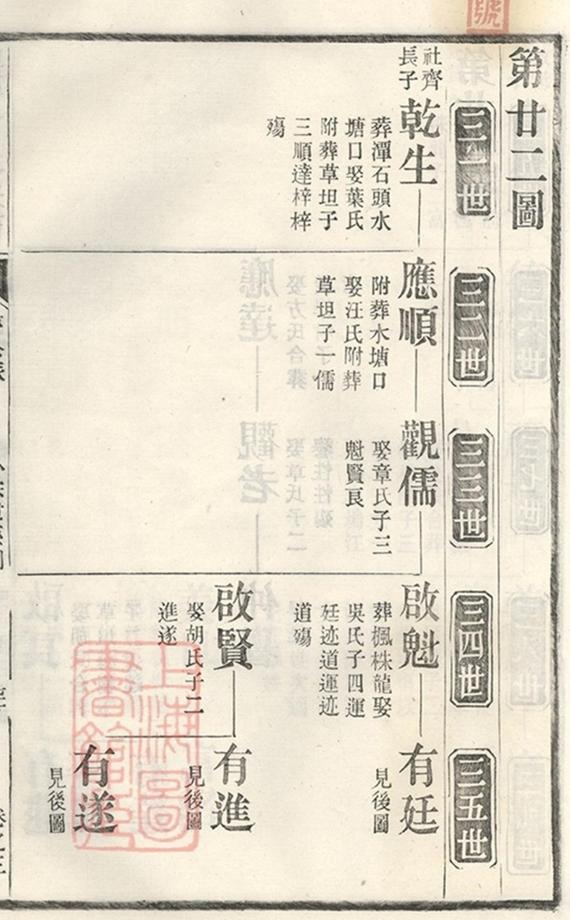 第廿二圖
三一世
社齊
長子
乾生
葬潭石頭水
塘口娶葉氏
附葬草坦子
三順達梓梓
殤
三二世
應順
附葬水塘口
娶汪氏附葬
草坦子一儒
三三世
觀儒
娶章氏子三
魁賢良
三四世
啟魁
葬楓株龍娶
吳氏子四運
廷迹道運迹
道殤
啟賢
娶胡氏子二
進遂
三五世
有廷
見後圖
有進
見後圖
有遂
見後圖
上海圖
書館藏
號